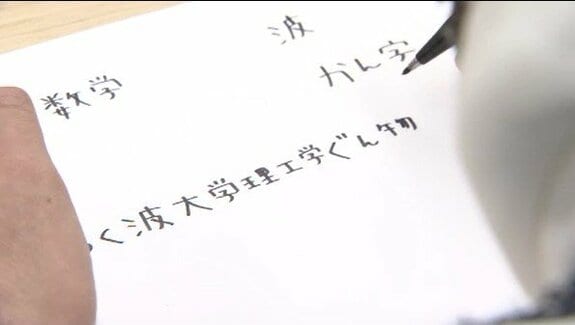 波
数学
かん字
く波大学理工学ぐん物